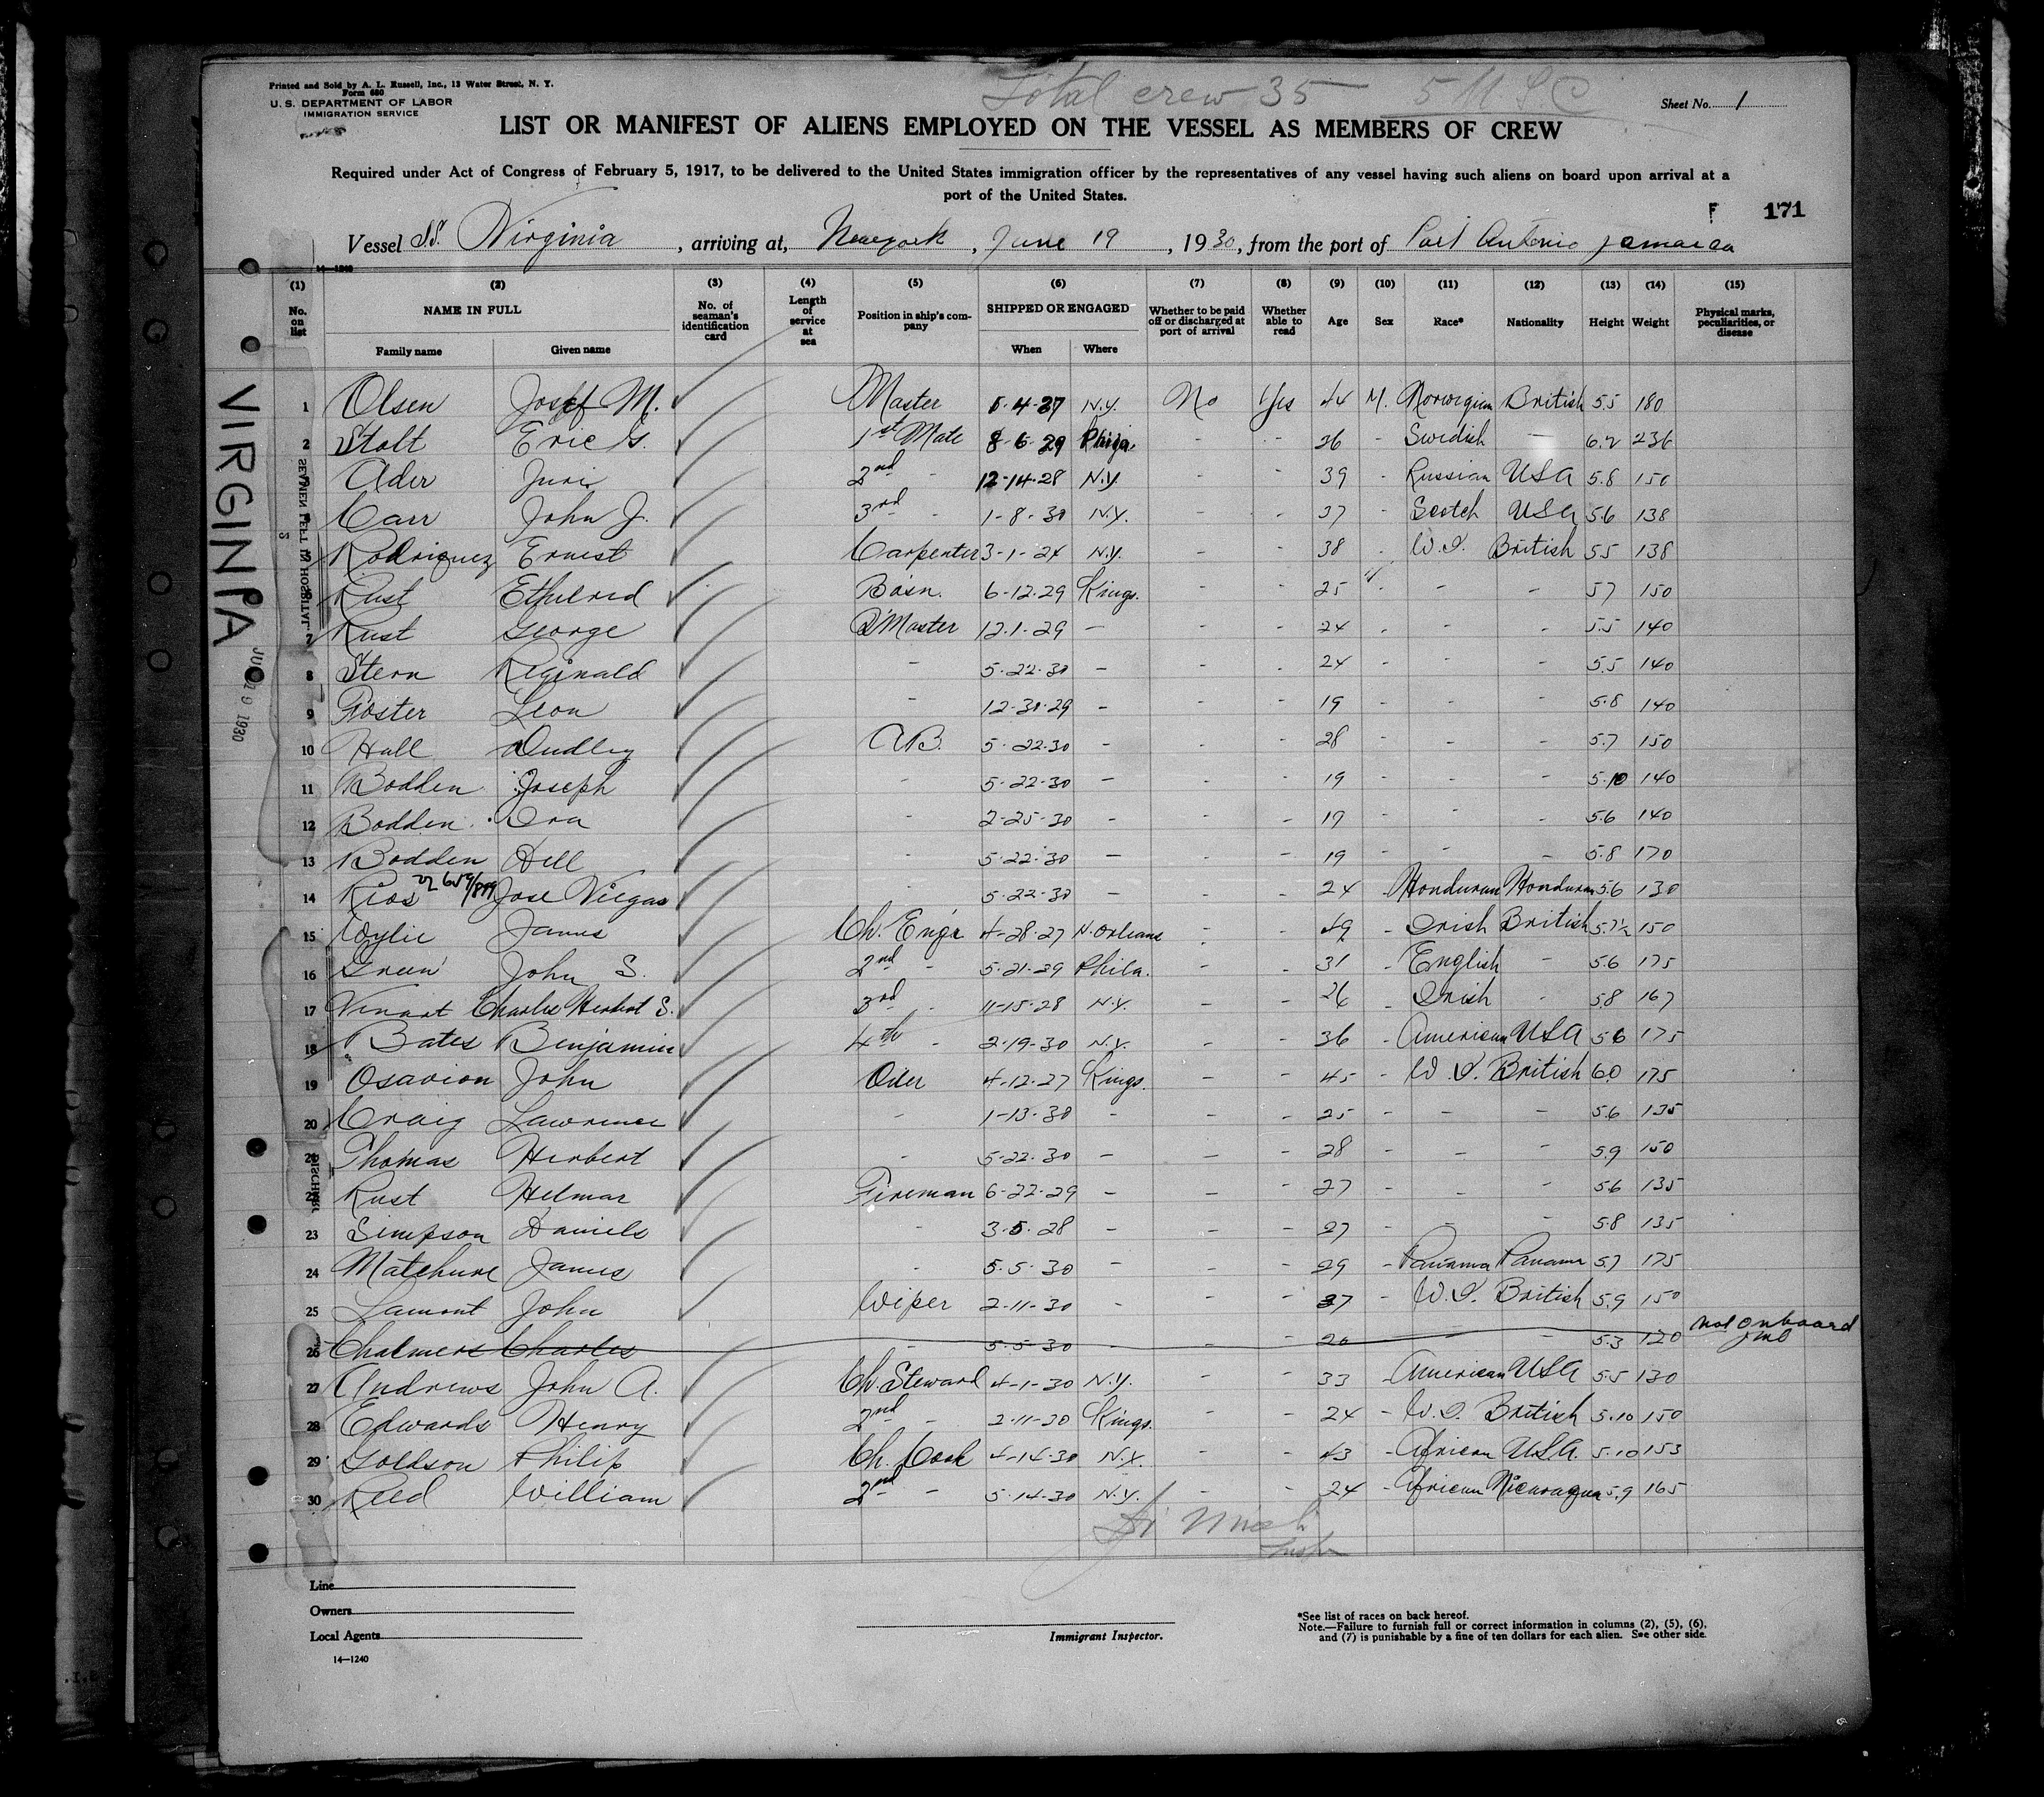 Printed and Sold by A. L. Russell, Inc., 13 Water Street, N. Y.
Form 680
U. S. DEPARTMENT OF LABOR
IMMIGRATION SERVICE
Total crew 35
Sheet No. 1
LIST OR MANIFEST OF ALIENS EMPLOYED ON THE VESSEL AS MEMBERS OF CREW
Required under Act of Congress of February 5, 1917, to be delivered to the United States immigration officer by the representatives of any vessel having such aliens on board upon arrival at a
port of the United States.
F 171
Vessel SS. Virginia, arriving at, New york, June 19, 1930, from the port of Port Antonio Jamaica
14—1240
(1) (2) (3) (4) (5) (6) (7) (8) (9) (10) (11) (12) (13) (14) (15)
No. on list NAME IN FULL No. of seaman's identification card Length of service at sea Position in ship's company SHIPPED OR ENGAGED Whether to be paid off or discharged at port of arrival Whether able to read Age Sex Race* Nationality Height Weight Physical marks, peculiarities, or disease
Family name Given name When Where
1 Olsen Josef M. Master 5-4-27 N.Y. No Yes 44 M. Norwegian British 5.5 180
2 Stolt Eric G. 1st Mate 8-6-29 Phila. - - 26 - Swedish - 6.2 236
3 Ader Juris 2nd - 12-14-28 N.Y. - - 39 - Russian USA 5.8 150
4 Carr John J. 3rd - 1-8-30 N.Y. - - 37 - Scotch USA 5.6 138
5 Rodriquez Ernest Carpenter 3-1-24 N.Y. - - 38 - W.I. British 5.5 138
6 Rust Ethelred Bosn. 6-12-29 Kings. - - 25 - - 5.7 150
7 Rust George Q'Master 12-1-29 - - - 24 - - - 5.5 140
8 Stern Reginald - 5-22-30 - - - 24 - - - 5.5 140
9 Foster Leon - 12-31-29 - - - 19 - - - 5.8 140
10 Hall Dudley A.B. 5-22-30 - - - 28 - - - 5.7 150
11 Bodden Joseph - 5-22-30 - - - 19 - - - 5.10 140
12 Bodden Ora - 2-25-30 - - - 19 - - - 5.6 140
13 Bodden Dell - 5-22-30 - - - 19 - - - 5.8 170
14 Rios Jose Viegas - 5-22-30 - - - 24 - Honduran Honduran 5.6 130
15 Wylie James Ch. Engr 4-28-27 N. Orleans - - 49 - Irish British 5.7½ 150
16 Green John S. 2nd - 5-21-29 Phila. - - 31 - English - 5.6 175
17 Vinart Charles Herbert S. 3rd - 11-15-28 N.Y. - - 26 - Irish - 5.8 167
18 Bates Benjamin 4th - 2-19-30 N.Y. - - 36 - American USA 5.6 175
19 Osavion John Oiler 4-12-27 Kings. - - 45 - W.I. British 6.0 175
20 Craig Lawrence - 1-13-30 - - - 25 - - - 5.6 135
21 Thomas Herbert - 5-22-30 - - - 28 - - - 5.9 150
22 Rust Helmar Fireman 6-22-29 - - - 27 - - - 5.6 135
23 Simpson Daniels - 3-5-28 - - 27 - - - 5.8 135
24 Matchure James - 5-5-30 - - - 29 - Panama Panama 5.7 175
25 Lamont John Wiper 2-11-30 - - - 37 - W.I. British 5.9 150
26 Chalmers Charles - 5-5-30 - - - 20 - - 5.3 120 not onboard
27 Andrews John A. Ch. Steward 4-1-30 N.Y. - - 33 - American USA 5.5 130
28 Edwards Henry 2nd - 2-11-30 Kings. - - 24 - W.I. British 5.10 150
29 Goldson Philip Ch. Cook 4-14-30 N.Y. - - 43 - African U.S.A. 5.10 153
30 Reed William 2nd - 5-14-30 N.Y. - - 24 - African Nicaragua 5.9 165
Line
Owners
Local Agents
14—1240
Immigrant Inspector.
*See list of races on back hereof.
Note.—Failure to furnish full or correct information in columns (2), (5), (6),
and (7) is punishable by a fine of ten dollars for each alien. See other side.
VIRGINIA
1930
SEAMEN LEFT IN HOSPITAL